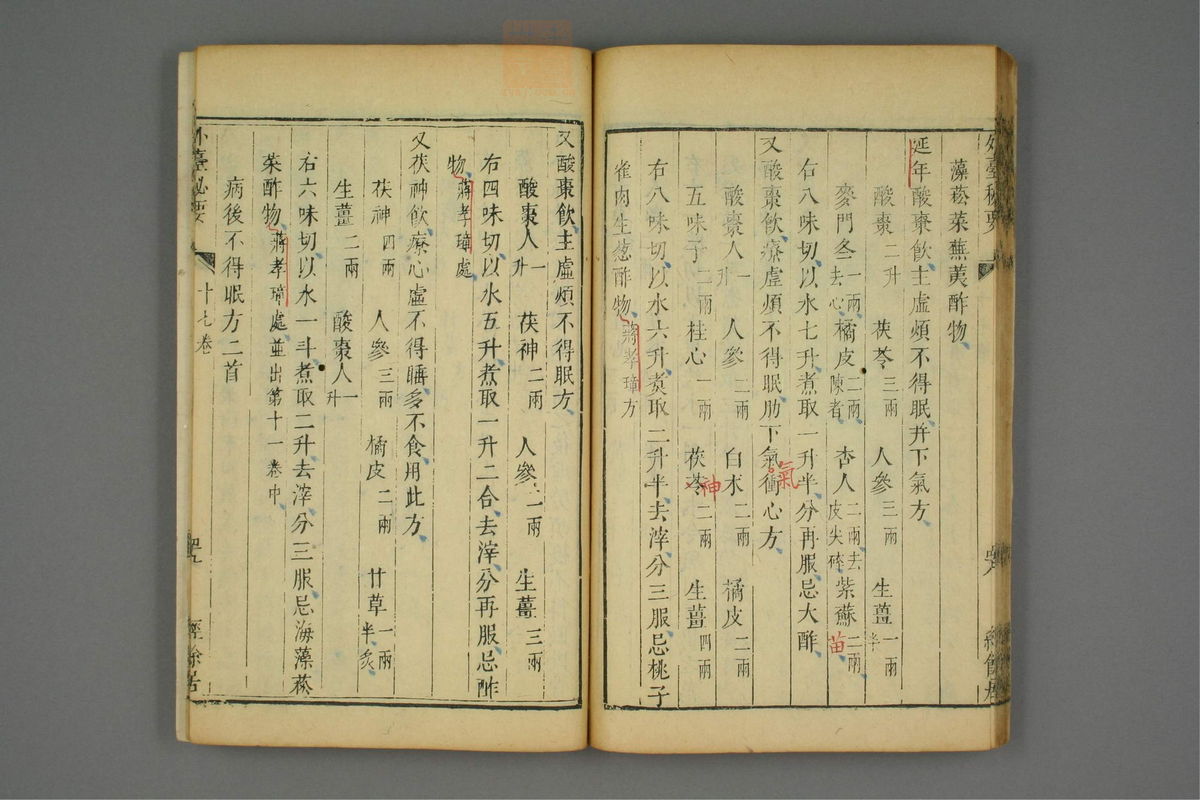 外臺秘要
藻菘菜蕪荑酢物
延年酸棗飲主虛煩不得眠并下氣方
酸棗二升 茯苓三兩 人參三兩 生薑一兩半
麥門冬一兩去心 橘皮二兩陳者 杏人二兩去皮尖碎 紫蘇二兩
苗
右八味切以水七升煮取一升半分再服忌大酢
又酸棗飲療虛煩不得眠肋下氣衝心方
氣
酸棗人一升 人參二兩 白朮二兩 橘皮二兩
五味子二兩 桂心一兩 茯苓二兩 生薑四兩
神
右八味切以水六升煑取二升半去滓分三服忌桃子
雀肉生葱酢物蔣孝璋方
經餘居
又酸棗飲主虛煩不得眠方
酸棗人一升 茯神二兩 人參二兩 生薑三兩
右四味切以水五升煮取一升二合去滓分再服忌酢
物蔣孝璋處
又茯神飲療心虛不得睡多不食用此方
茯神四兩 人參三兩 橘皮二兩 甘草一兩半炙
生薑二兩 酸棗人一升
右六味切以水一斗煮取二升去滓分三服忌海藻菘
菜酢物蔣孝璋處並出第十一卷中
病後不得眠方二首
外臺秘要 十七卷 經餘居